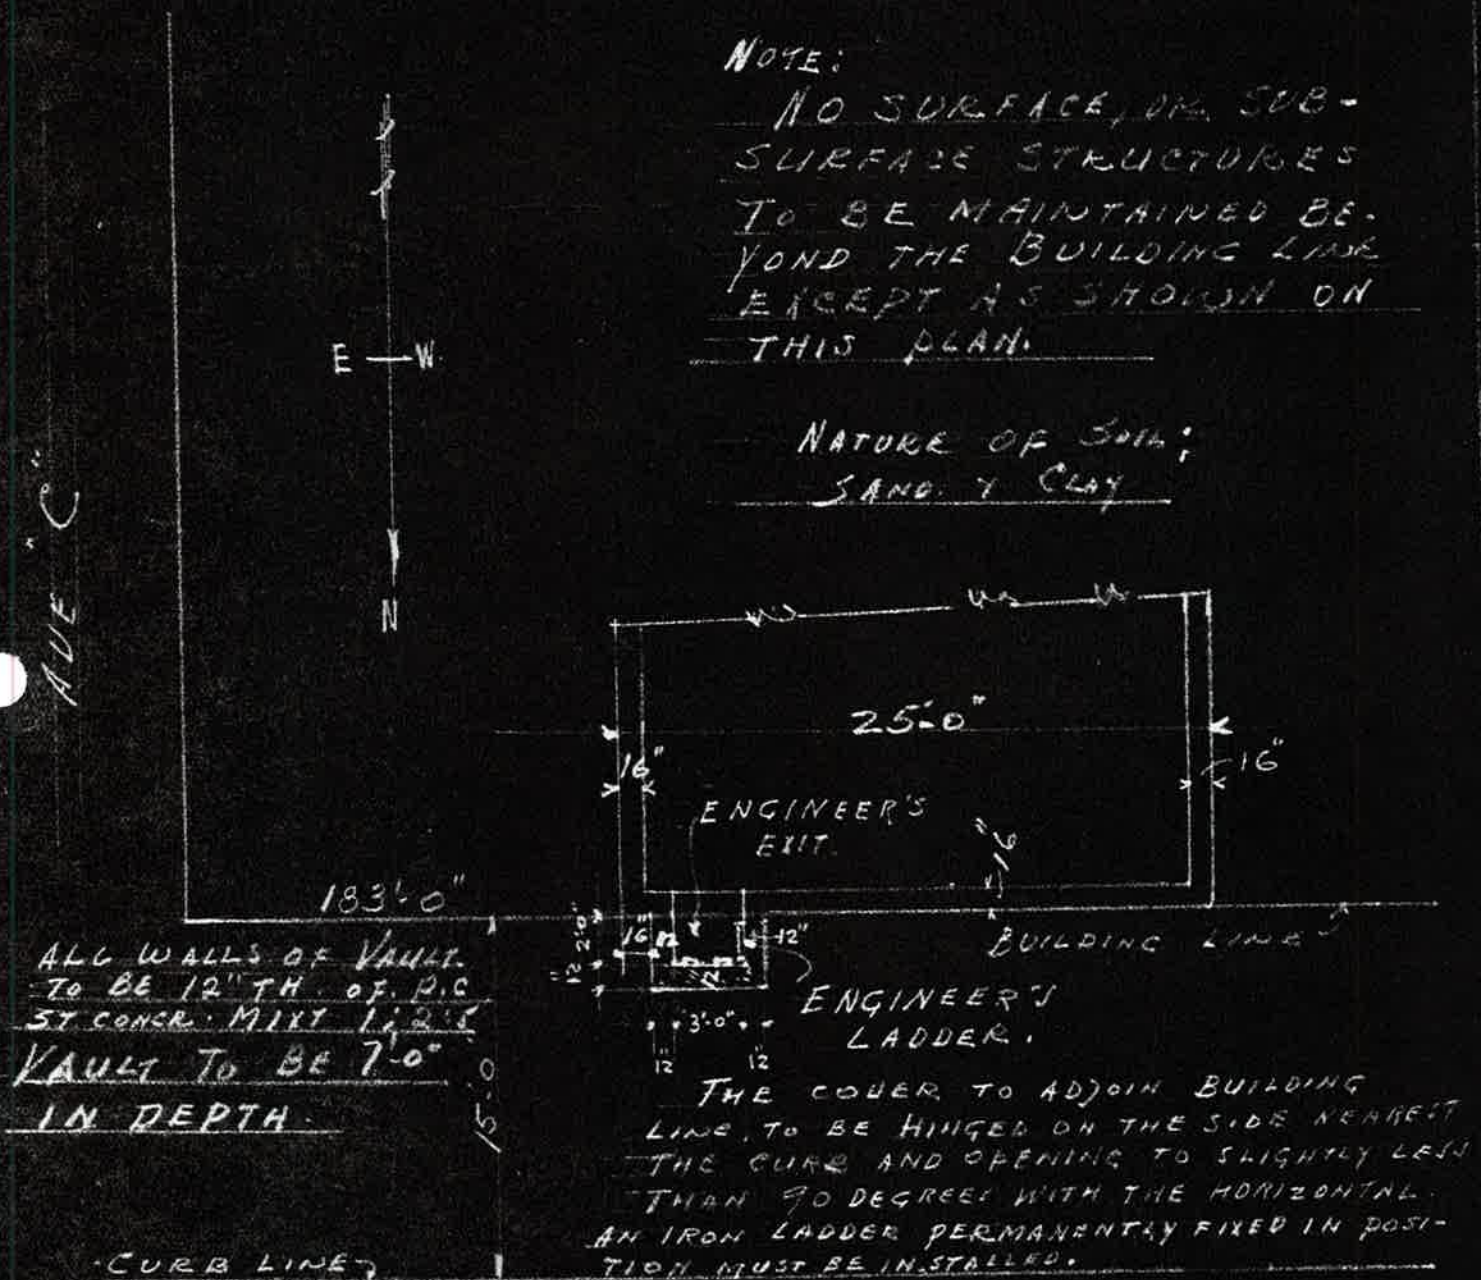 NOTE:
NO SURFACE, OR SUB-
SURFACE STRUCTURES
TO BE MAINTAINED BE-
YOND THE BUILDING LINE
EXCEPT AS SHOWN ON
THIS PLAN.
E W
N
NATURE OF SOIL;
SAND. & CLAY
AVE "C"
25'-0"
16"
16"
ENGINEER'S
EXIT.
16"
183'-0"
2'-0"
12"
16"
12
12"
12"
BUILDING LINE
ENGINEER'S
LADDER.
3'-0"
12"
12"
ALL WALLS OF VAULT
TO BE 12" TH. OF. P.C
ST CONCR. MIXT 1:2:
VAULT TO BE 7'-0"
IN DEPTH.
15'-0
THE COVER TO ADJOIN BUILDING
LINE, TO BE HINGED ON THE SIDE NEAREST
THE CURB AND OPENING TO SLIGHTLY LESS
THAN 90 DEGREES WITH THE HORIZONTAL.
AN IRON LADDER PERMANENTLY FIXED IN POSI-
TION MUST BE INSTALLED.
CURB LINE